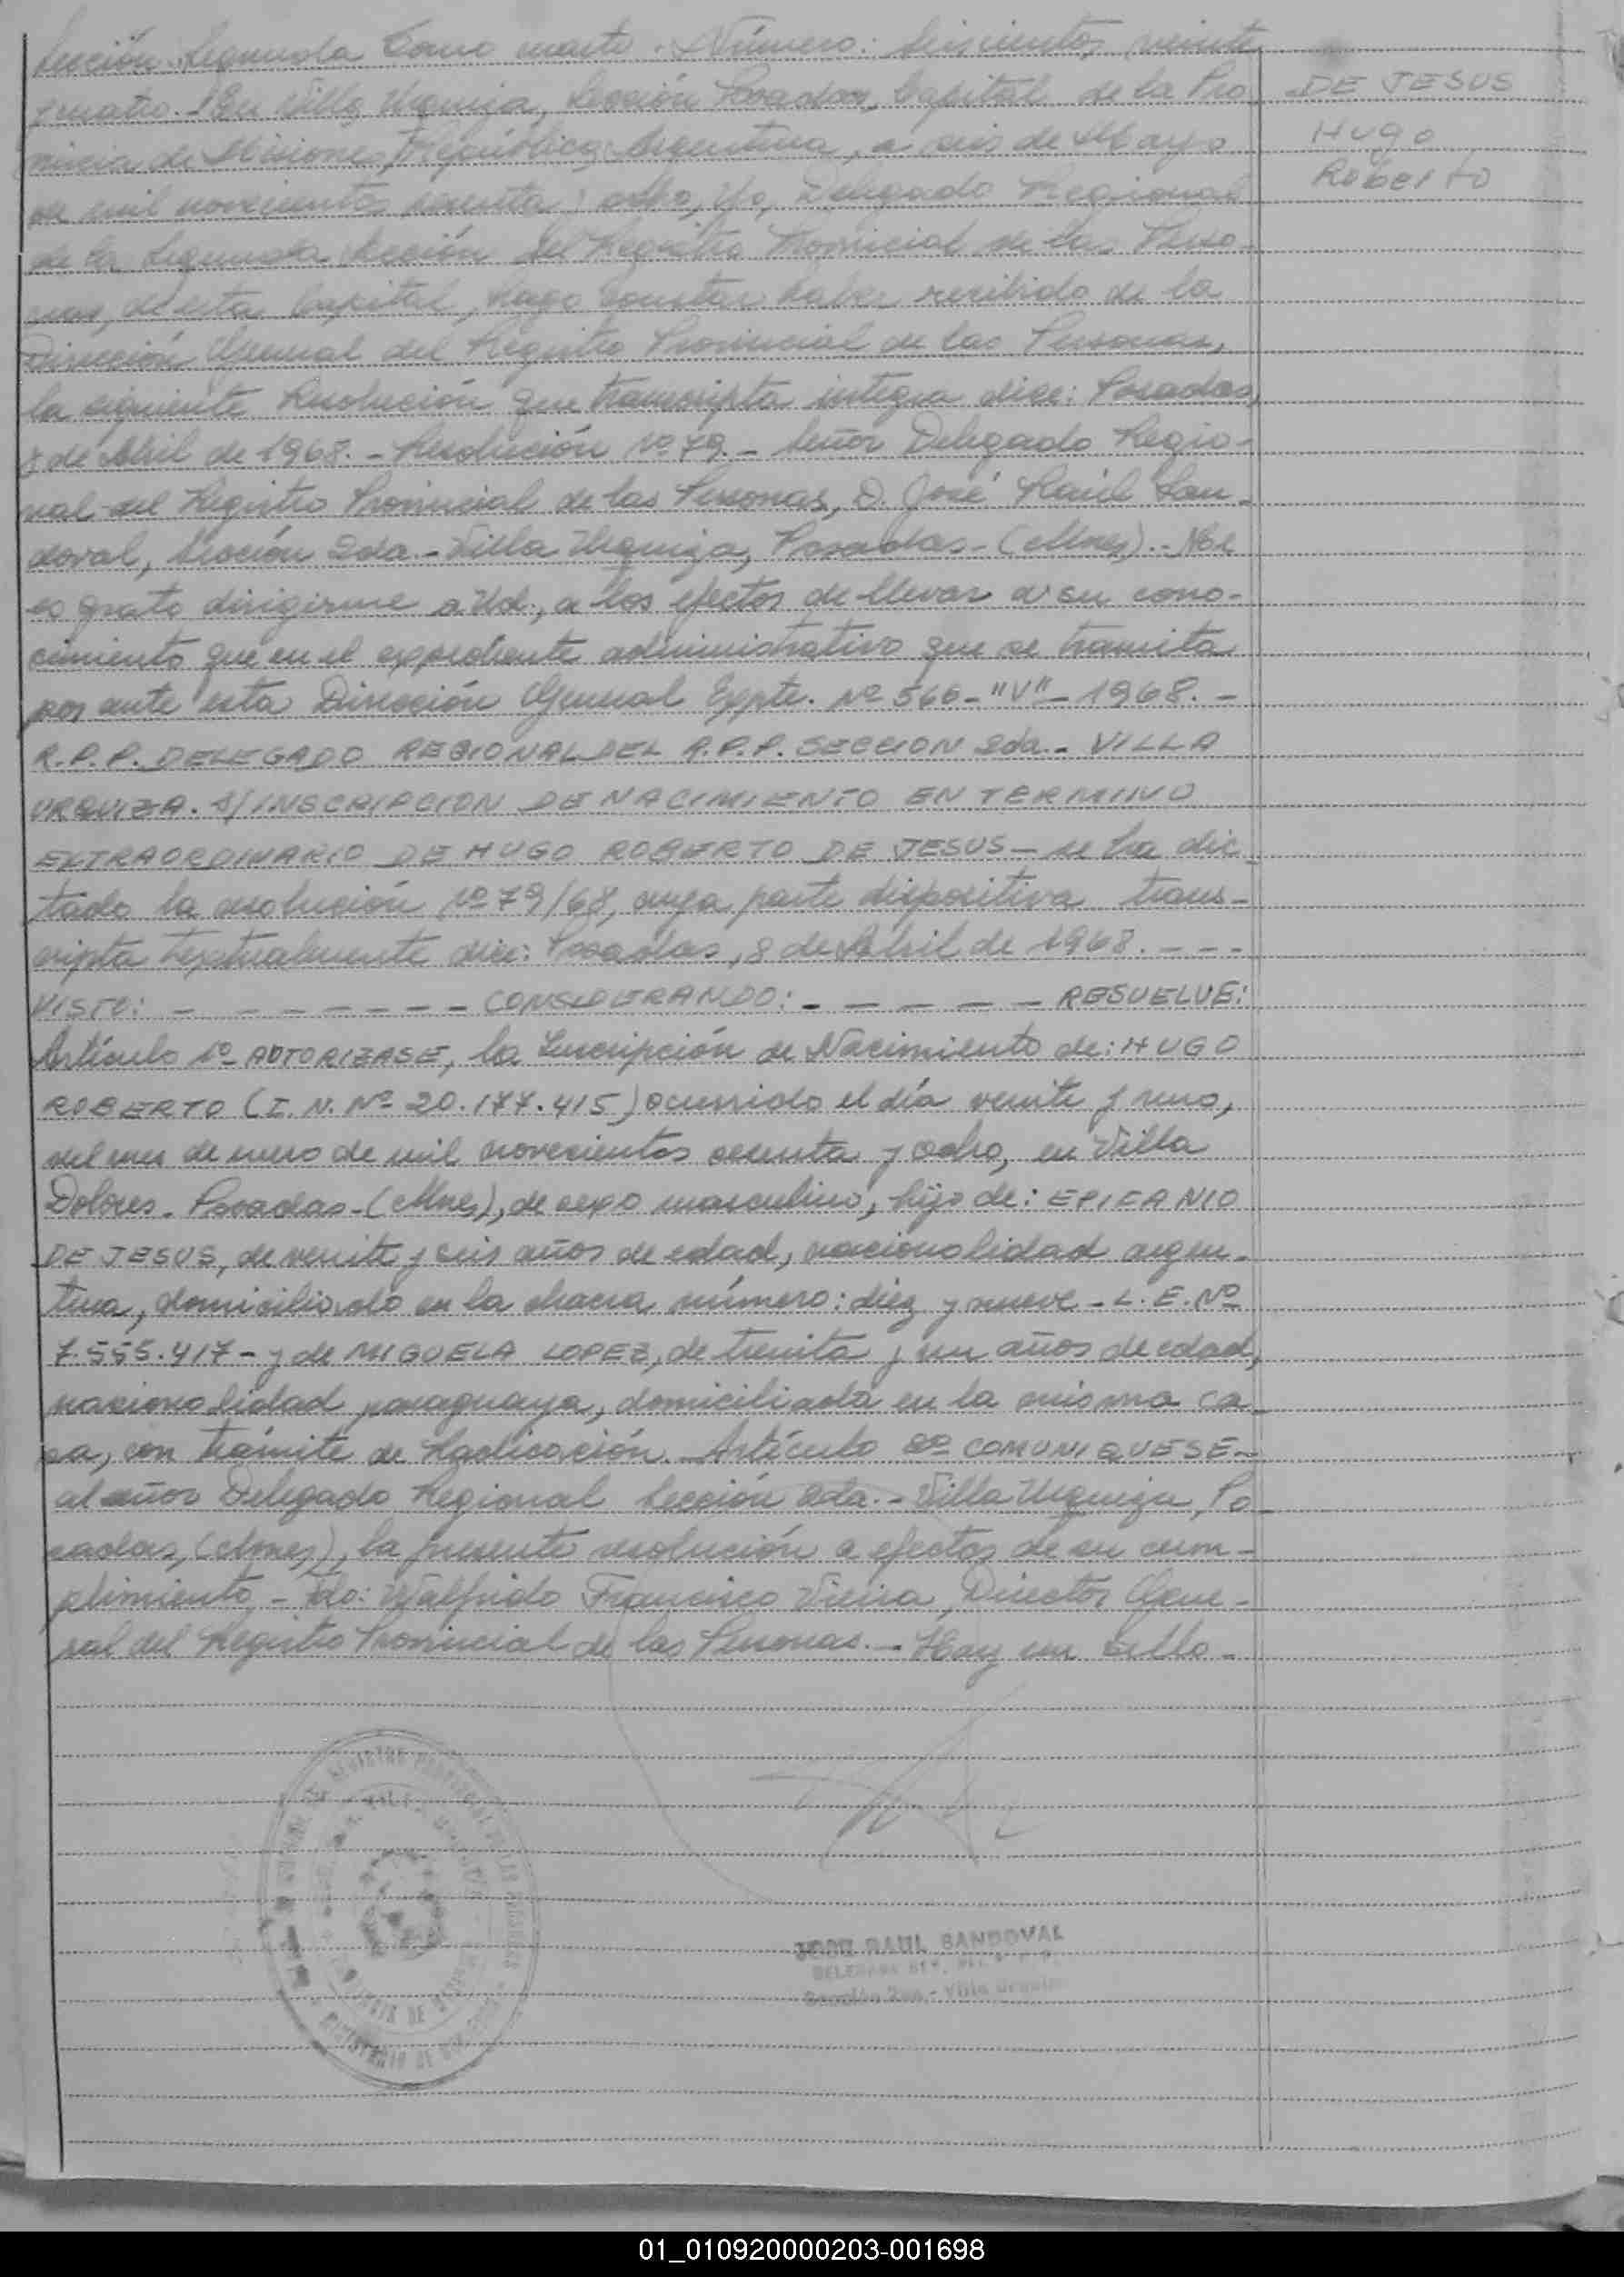 Sección Segunda Tomo cuarto. Número: Seiscientos veinte
y cuatro. - En Villa Urquiza, Sección Posadas, Capital de la Pro
vincia de Misiones, República Argentina, a seis de Mayo
de mil novecientos sesenta y ocho, Yo, Delegado Regional
de la Segunda Sección del Registro Provincial de las Perso-
nas, de esta Capital, hago constar haber recibido de la
Dirección General del Registro Provincial de las Personas,
la siguiente Resolución que transcripta integra dice: Posadas,
8 de Abril de 1968. - Resolución Nº 79. - Señor Delegado Regio-
nal del Registro Provincial de las Personas, D. José Raúl San-
doval, Sección 2da. - Villa Urquiza, Posadas - (Mnes). - Me
es grato dirigirme a Ud., a los efectos de llevar a su cono-
cimiento que en el expediente administrativo que se tramita
por ante esta Dirección General Expte. Nº 566 - "V" - 1968. -
R.P.P. DELEGADO REGIONAL DEL R.P.P. SECCION 2da. - VILLA
URQUIZA. S/ INSCRIPCION DE NACIMIENTO EN TERMINO
EXTRAORDINARIO DE HUGO ROBERTO DE JESUS - se ha dic-
tado la resolución Nº 79/68, cuya parte dispositiva trans-
cripta textualmente dice: Posadas, 8 de Abril de 1968. - - -
VISTO: - - - - - - - CONSIDERANDO: - - - - - RESUELVE:
Artículo 1º AUTORIZASE, la Inscripción de Nacimiento de: HUGO
ROBERTO (I. N. Nº 20.177.415) ocurrido el día veinte y uno,
del mes de enero de mil novecientos sesenta y ocho, en Villa
Dolores. Posadas - (Mnes), de sexo masculino, hijo de: EPIFANIO
DE JESUS, de veinte y seis años de edad, nacionalidad argen-
tina, domiciliado en la chacra número: diez y nueve - L. E. Nº
7.555.417 - y de MIGUELA LOPEZ, de treinta y un años de edad,
nacionalidad paraguaya, domiciliada en la misma ca-
sa, con trámite de Radicación. - Artículo 2º COMUNIQUESE -
al señor Delegado Regional Sección 2da. - Villa Urquiza, Po-
sadas, (Mnes), la presente resolución a efectos de su cum-
plimiento. - Fdo: Walfrido Francisco Vieira, Director Gene-
ral del Registro Provincial de las Personas. - Hay un sello. -
DE JESUS
Hugo
Roberto
JOSE RAUL SANDOVAL
Sección 2da. - Villa Urquiza
01_010920000203-001698